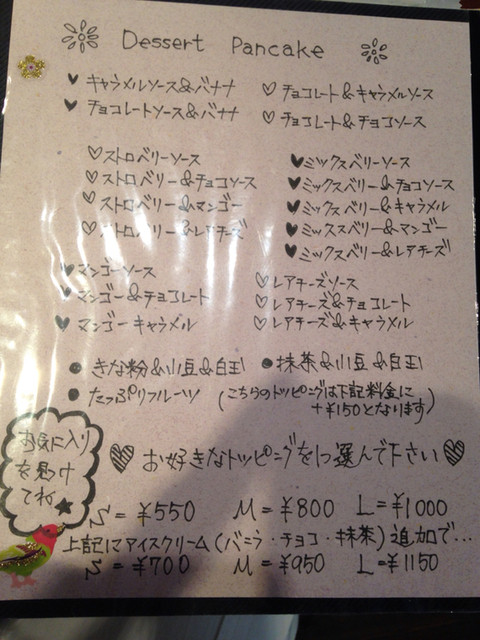 Dessert Pancake
キャラメルソース&バナナ
チョコレートソース&バナナ
チョコレート&キャラメルソース
チョコレート&チョコソース
ストロベリーソース
ストロベリー&チョコソース
ストロベリー&マンゴー
ストロベリー&レアチーズ
ミックスベリーソース
ミックスベリー&チョコソース
ミックスベリー&キャラメル
ミックスベリー&マンゴー
ミックスベリー&レアチーズ
マンゴーソース
マンゴー&チョコレート
マンゴーキャラメル
レアチーズソース
レアチーズ&チョコレート
レアチーズ&キャラメル
きな粉&小豆&白玉
抹茶&小豆&白玉
たっぷりフルーツ (こちらのトッピングは下記料金に
+¥150となります)
お気に入り
を見つけ
てね★
お好きなトッピングを1つ選んで下さい
S=¥550 M=¥800 L=¥1000
上記にアイスクリーム(バニラ・チョコ・抹茶)追加で...
S=¥700 M=¥950 L=¥1150